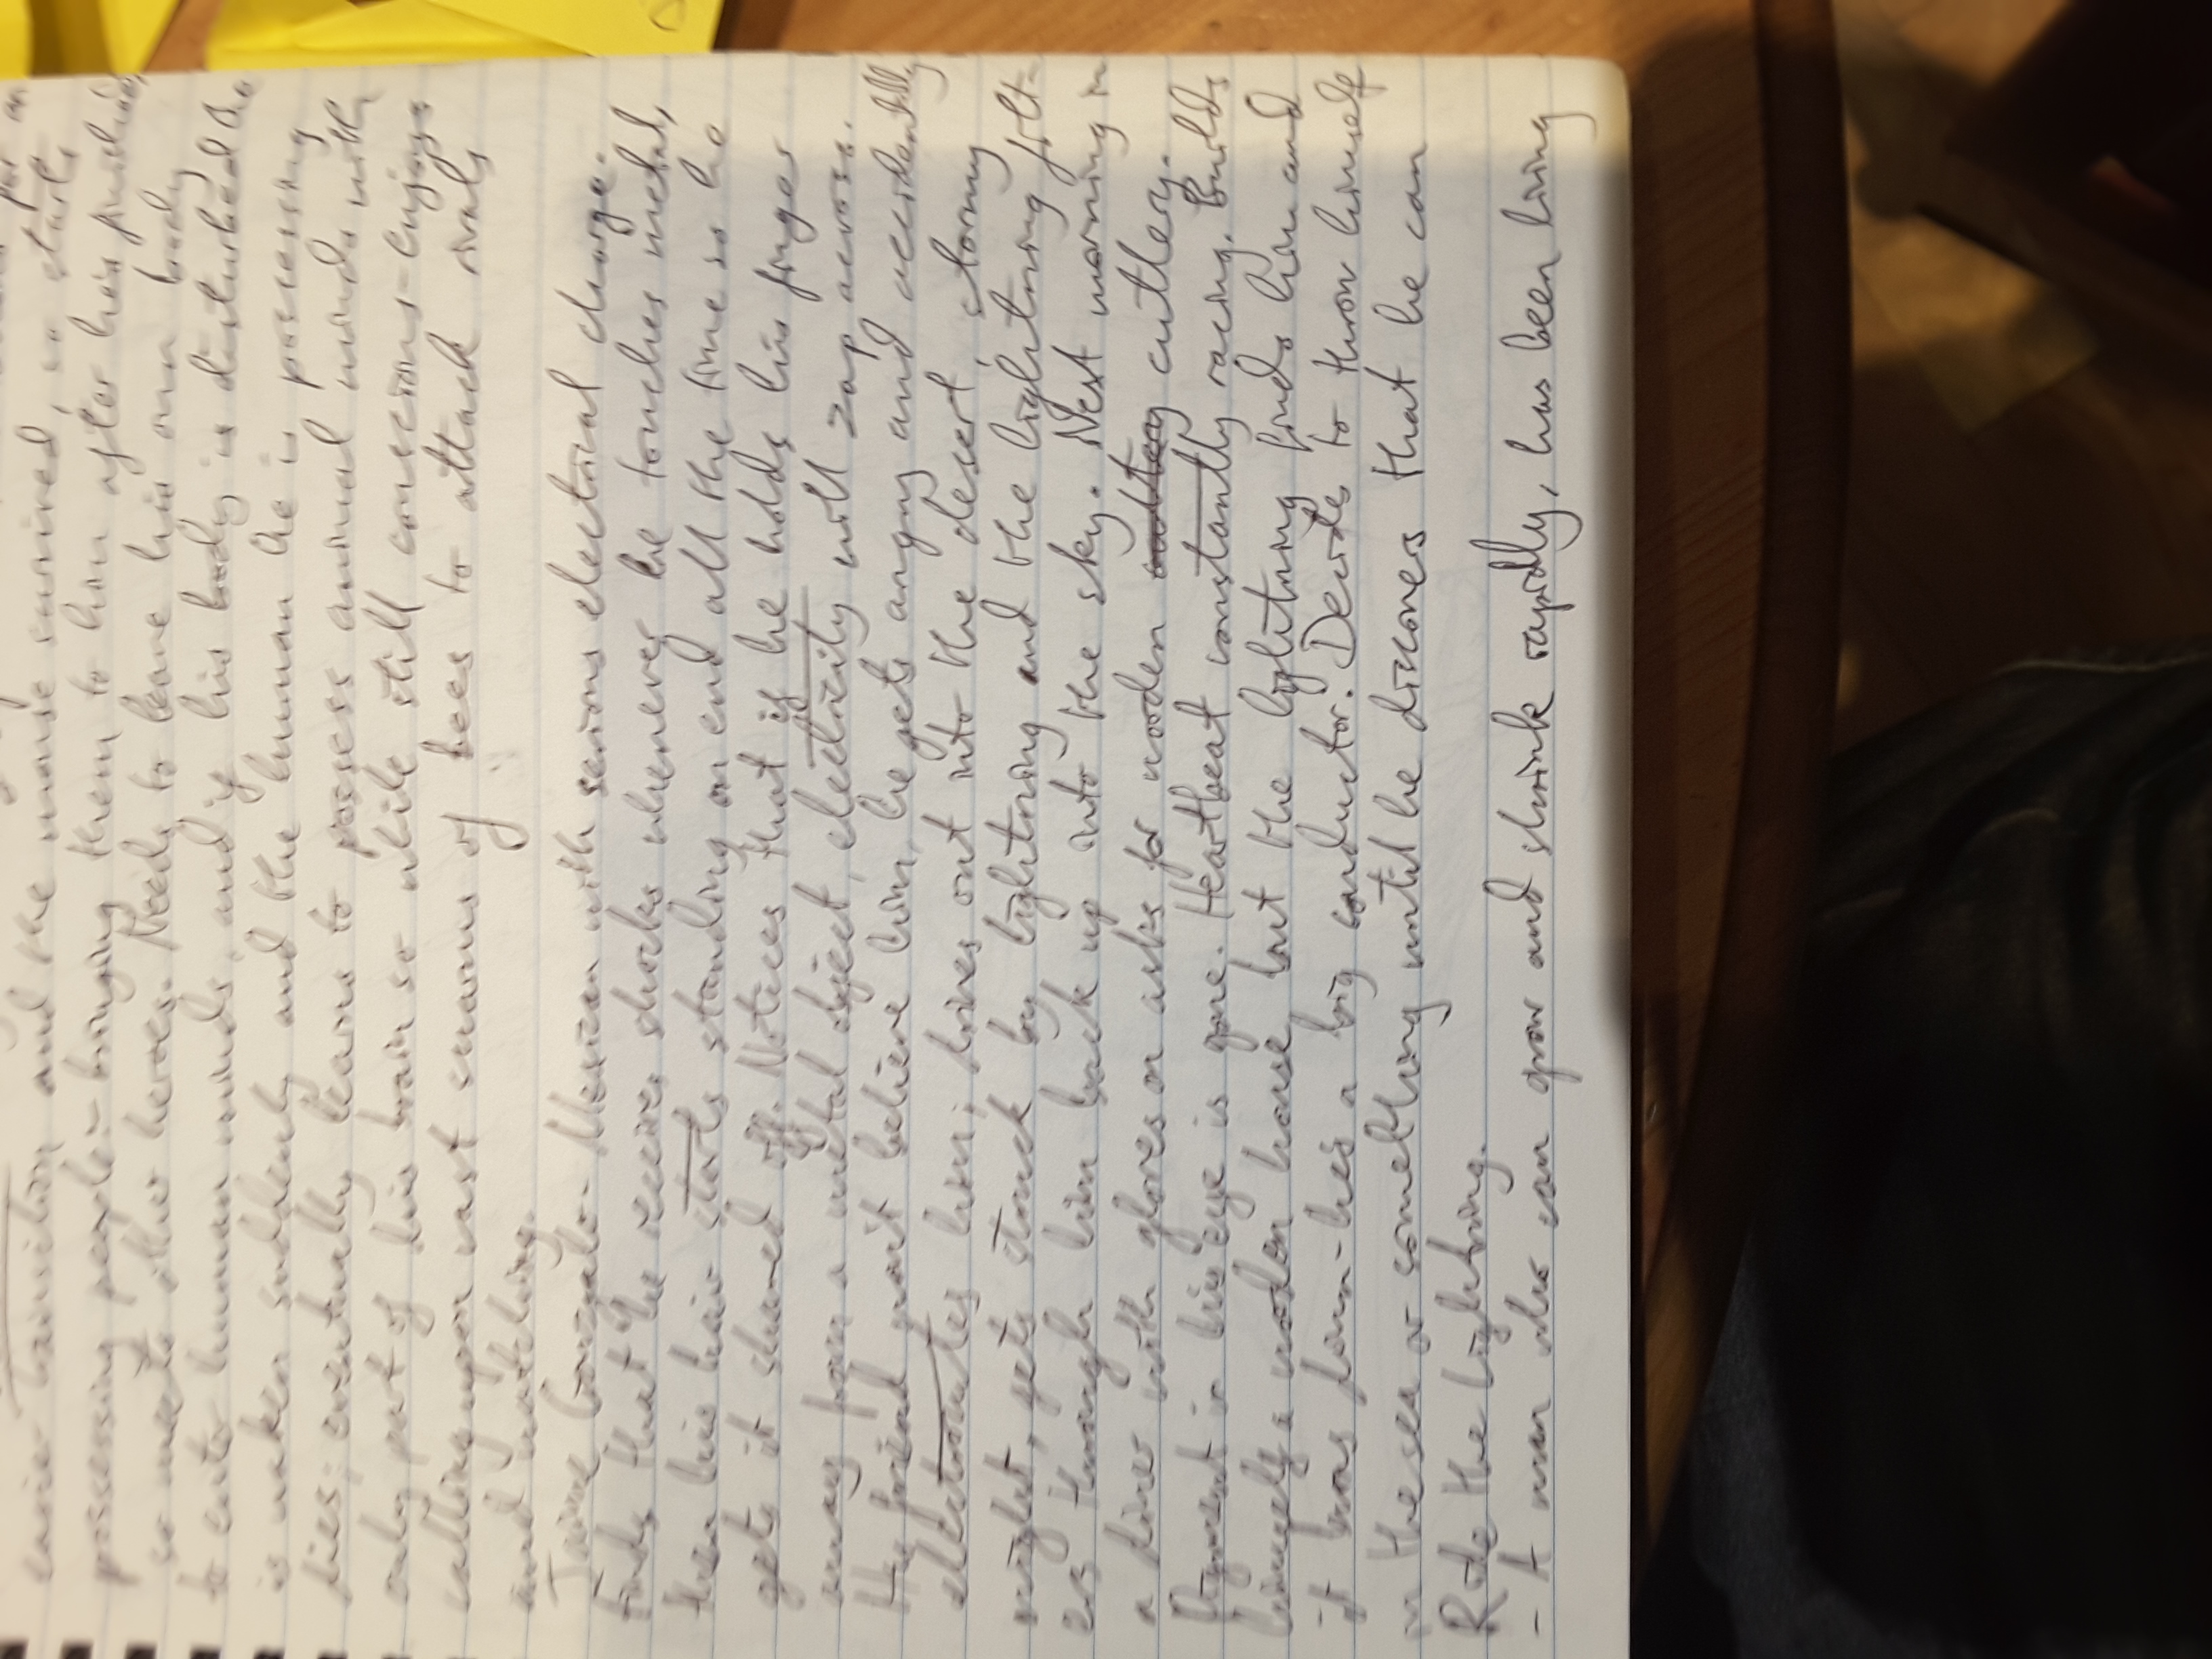 for an
easier transition and the mouse survived, so starts
possessing people - bringing them to him after he's finished,
so meets other heroes. Needs to leave his own body
to enter human minds, and if his body is disturbed he
is woken suddenly and the human he is possessing
dies; eventually learns to possess animal minds with
only part of his brain so while still conscious - enjoys
calling upon vast swarms of bees to attack rivals
and watching.
Jaime Gonzalo - Mexican with serious electrical charge.
Finds that he receives shocks whenever he touches metal,
then his hair starts standing on end all the time so he
gets it shaved off. Notices that if he holds his finger
away from a metal object, electricity will zap across.
His friend won't believe him, he gets angry and accidentally
electrocutes him; drives out into the desert, stormy
night, gets struck by lightning and the lightning filt-
ers through him back up into the sky. Next morning in
a diner with gloves on asks for wooden cutlery.
Pigment in his eye is gone. Heartbeat constantly racing. Builds
himself a wooden house, but the lightning finds him and
it burns down - he's a big conductor. Decides to throw himself
in the sea or something until he discovers that he can
Ride the Lightning.
- A man who can grow and shrink rapidly, has been living